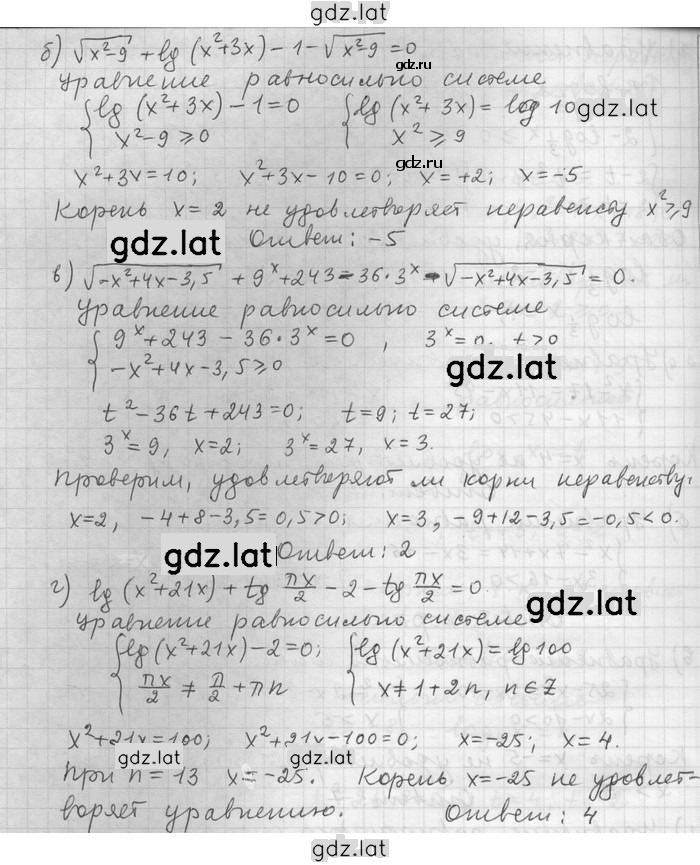 gdz.lat
б) √(x²-9) + lg (x²+3x) - 1 - √(x²-9) = 0
Уравнение равносильно системе
{ lg (x²+3x) - 1 = 0   { lg (x²+3x) = log 10 gdz.lat
x²-9 ≥ 0   x² ≥ 9
gdz.lat
x²+3x=10; x²+3x-10=0; x=+2; x=-5
Корень x=2 не удовлетворяет неравенству x²≥9
gdz.lat Ответ: -5
в) √(-x²+4x-3,5) + 9ˣ+243-36·3ˣ - √(-x²+4x-3,5) = 0.
Уравнение равносильно системе
{ 9ˣ+243-36·3ˣ=0, 3ˣ=n. t>0
-x²+4x-3,5≥0 gdz.lat
t²-36t+243=0; t=9; t=27;
3ˣ=9, x=2; 3ˣ=27, x=3.
Проверим, удовлетворяют ли корни неравенству:
x=2, -4+8-3,5=0,5>0; x=3, -9+12-3,5=-0,5<0.
gdz.lat Ответ: 2
г) lg (x²+21x) + tg πx/2 - 2 - tg πx/2 = 0.
Уравнение равносильно системе
gdz.lat
{ lg (x²+21x) - 2 = 0;   { lg (x²+21x) = lg 100
πx/2 ≠ π/2 + πn   x≠1+2n, n∈Z
x²+21x=100; x²+21x-100=0; x=-25; x=4.
gdz.lat
При n=13 x=-25. Корень x=-25 не удовлет-
воряет уравнению. Ответ: 4
gdz.lat